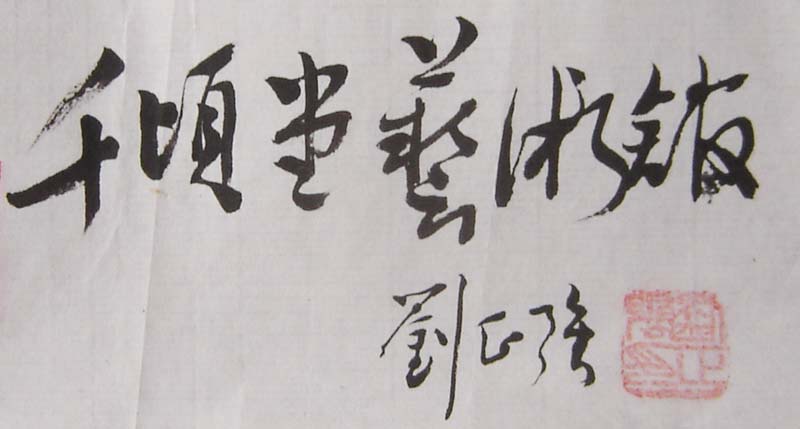 千頃堂藝術館
劉正強